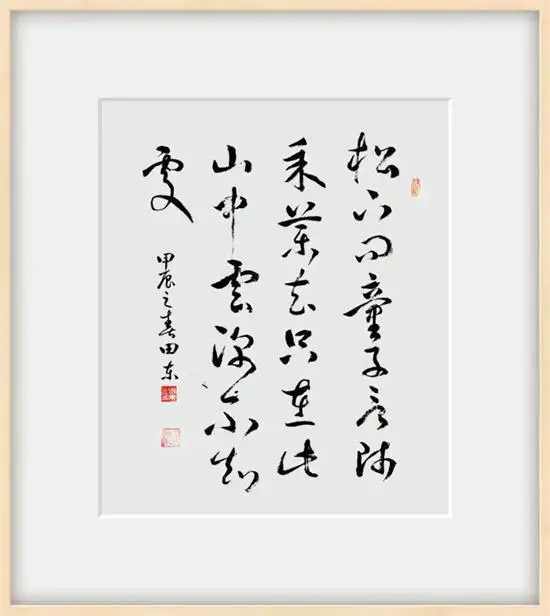 松下問童子言師
采藥去只在此
山中雲深不知
處
甲辰之春田东